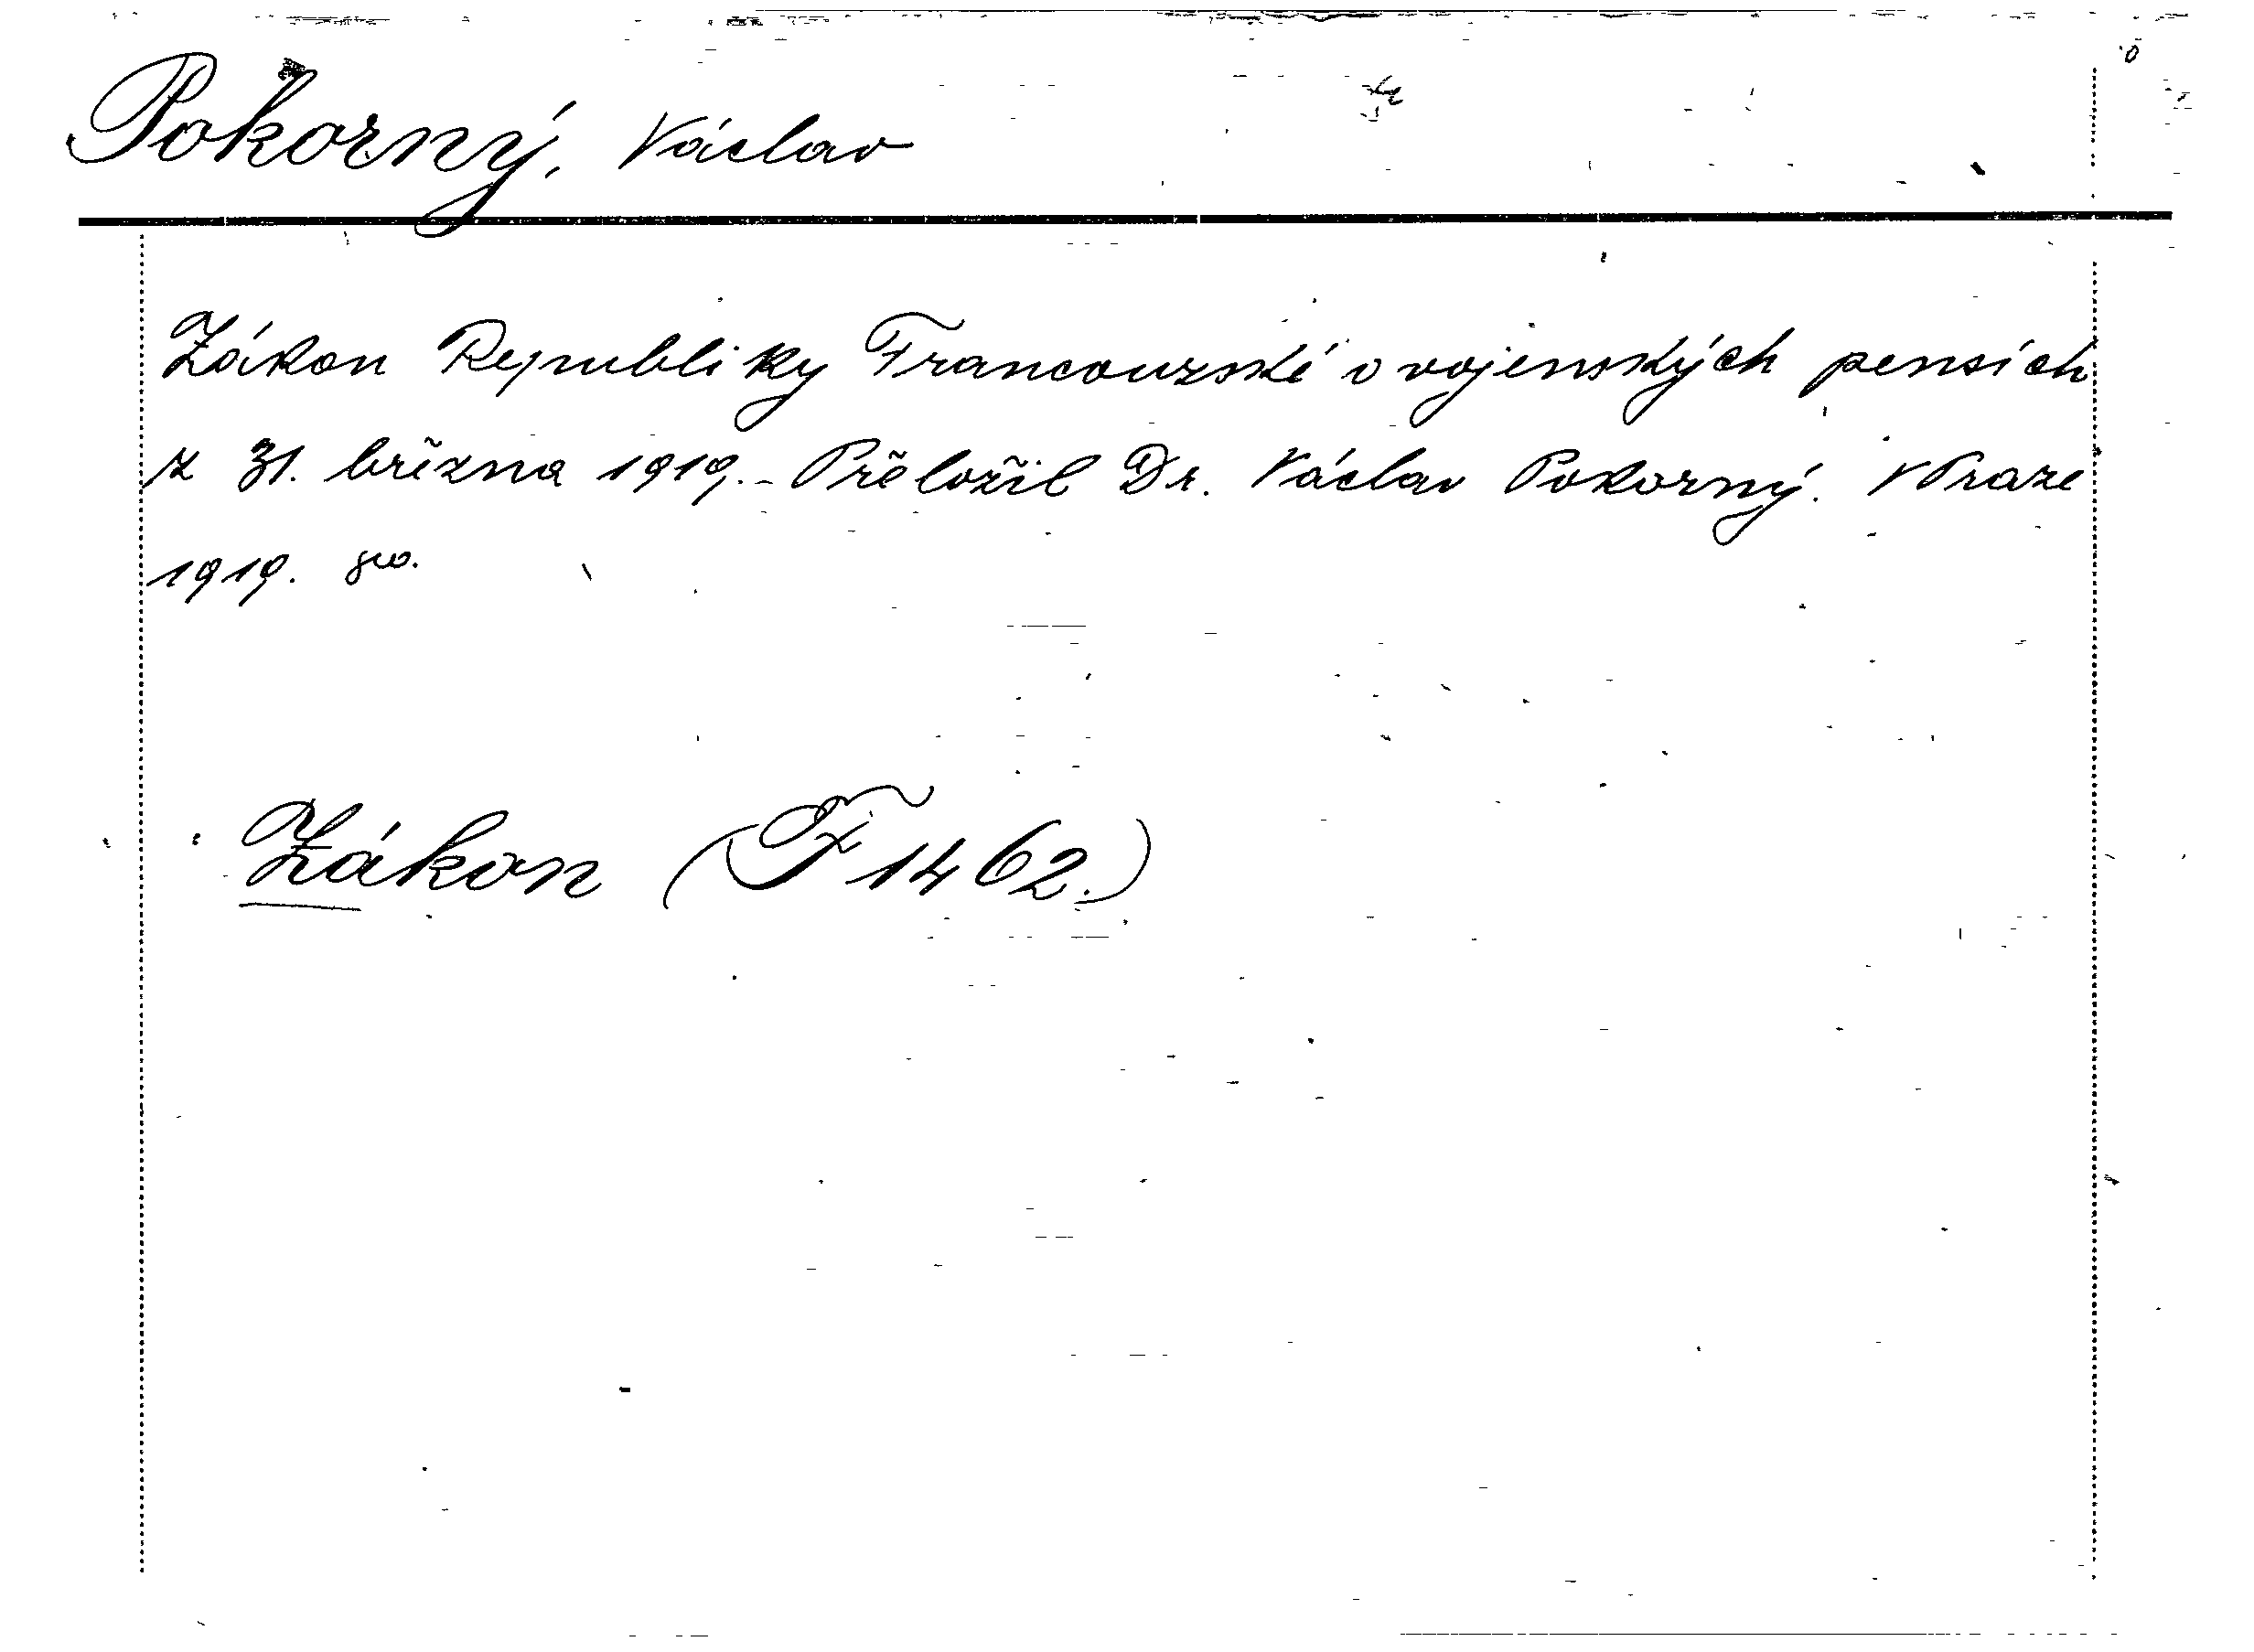 Pokorný, Václav
Zákon Republiky Francouzské o vojenských pensích
z 31. března 1919. - Přeložil Dr. Václav Pokorný. V Praze
1919. 8vo.
Zákon (F 1462.)